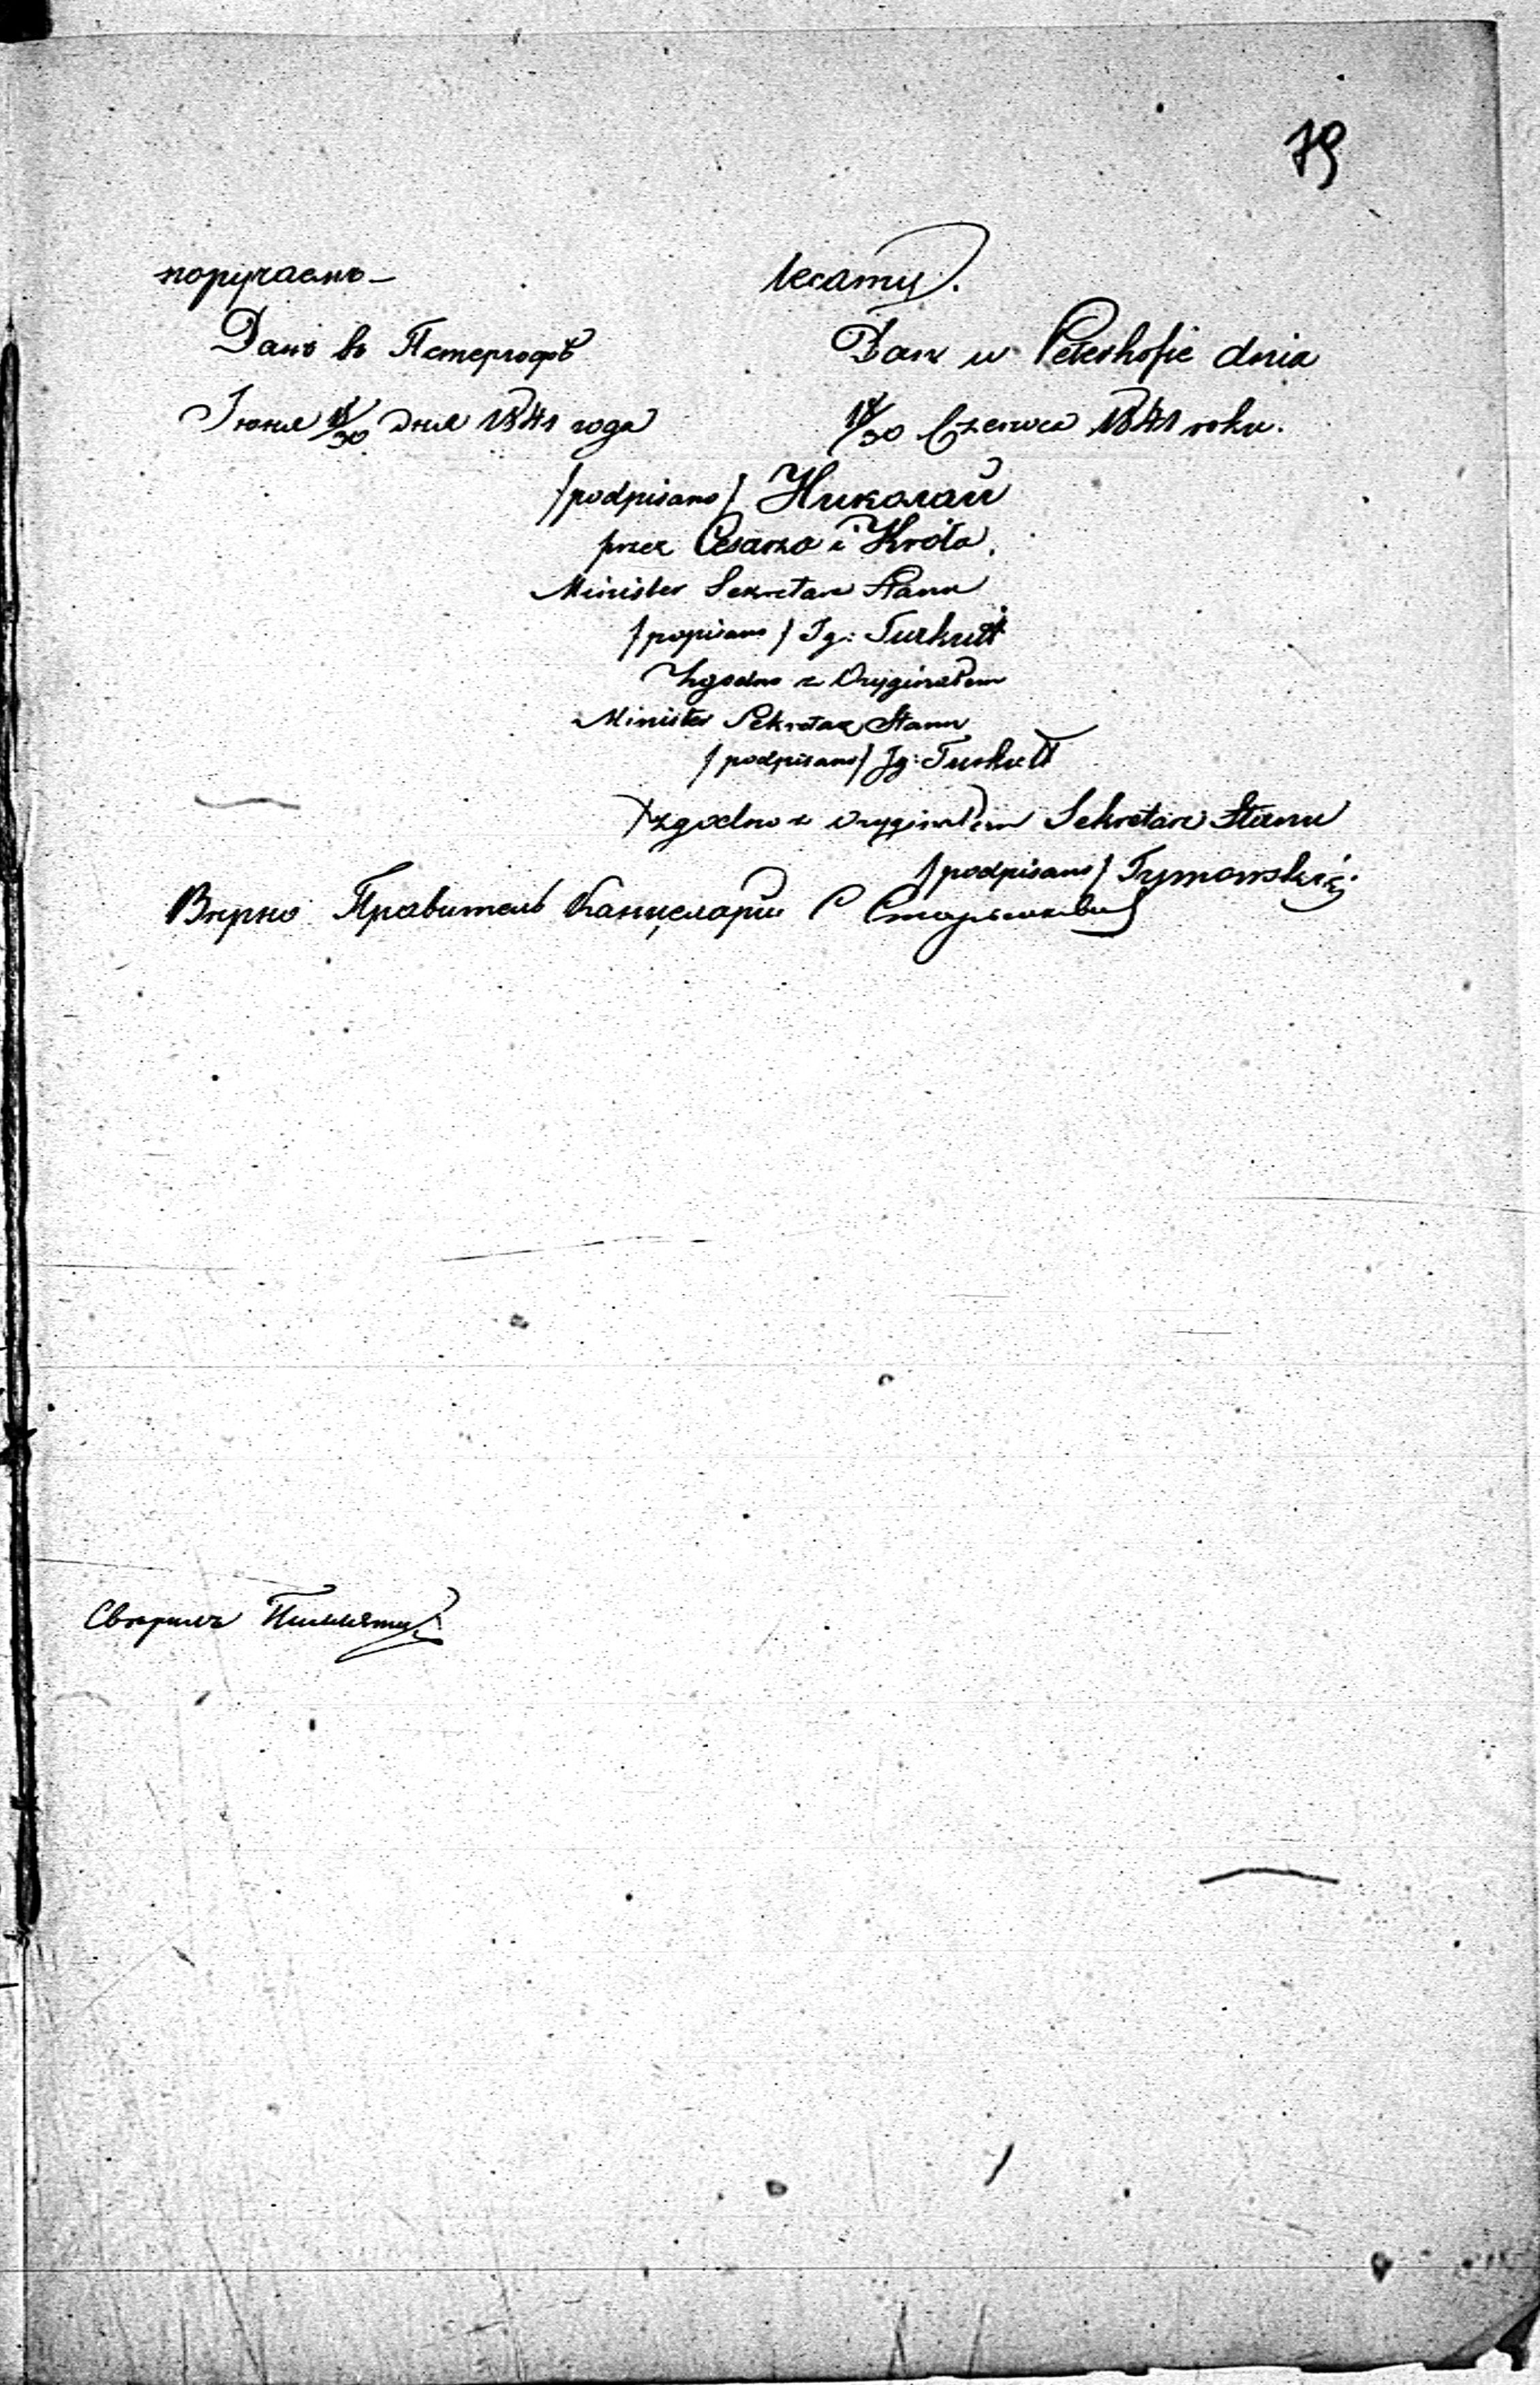 79
поручаемъ—
Данъ въ Петергофѣ
Іюня 18/30 дня 1841 года
lecamy.
Dan w Peterhofie dnia
18/30 Czerwca 1841 roku.
/podpisano/ Николай
przez Cesarza i Króla,
Minister Sekretarz Stanu
/popisano/ Ig: Turkułł
Zgodno z Oryginałem
Minister Sekretarz Stanu
/podpisano/ Ig: Turkułł
zgodno z oryginałem Sekretarz Stanu
/podpisano/ Tymowski.
Вѣрно Правитель Канцеляріи С
Свѣрилъ